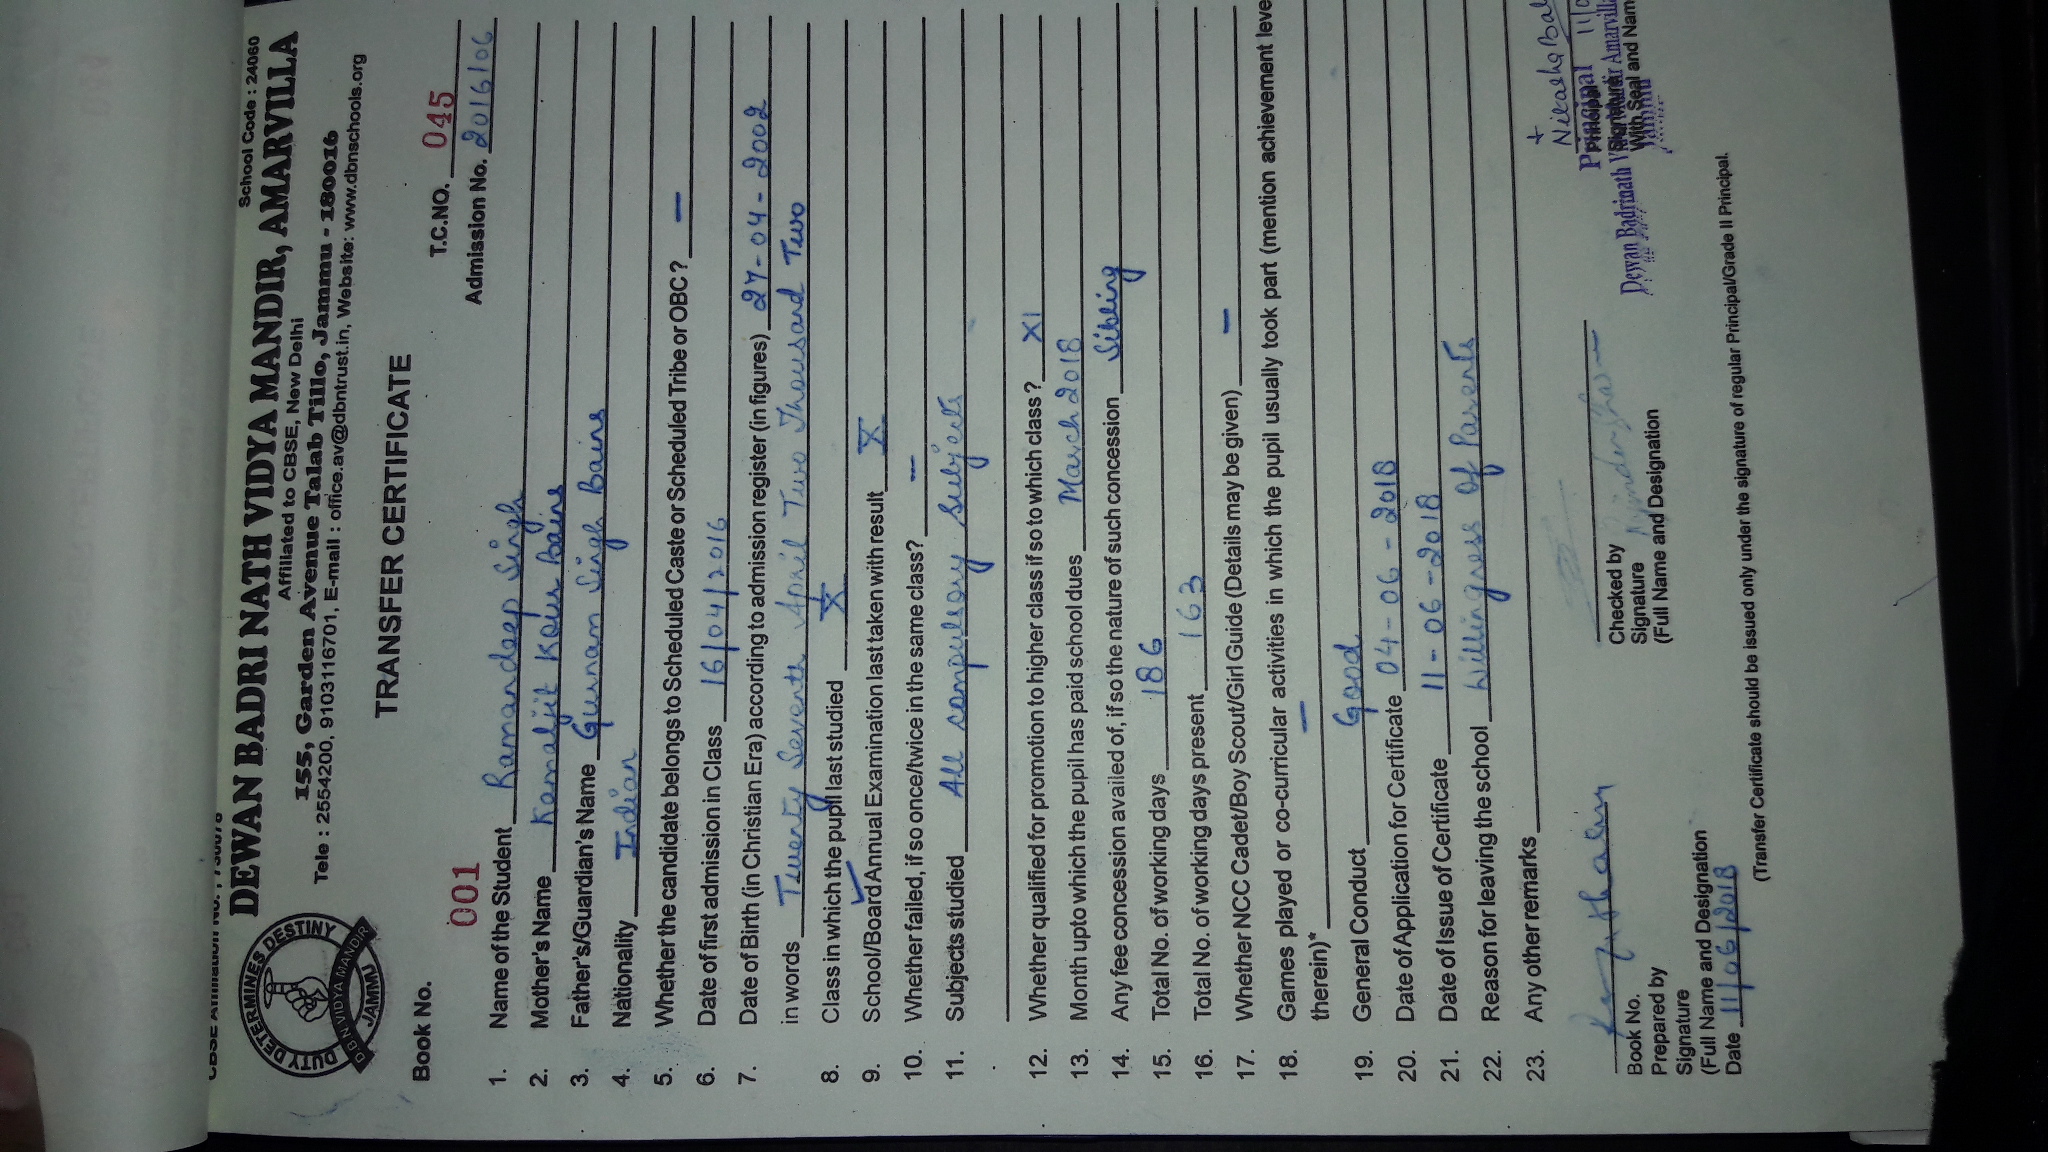 School Code : 24060
DEWAN BADRI NATH VIDYA MANDIR, AMARVILLA
Affiliated to CBSE, New Delhi
155, Garden Avenue Talab Tillo, Jammu - 180016
Tele : 2554200, 9103116701, E-mail : office.av@dbntrust.in, Website: www.dbnschools.org
DEITY DETERMINES DESTINY
D B N VIDYA MANDIR
JAMMU
TRANSFER CERTIFICATE
Book No. 001 T.C.NO. 045
Admission No. 2016/06
1. Name of the Student Ramandeep Singh
2. Mother's Name Kamaljit Kour Bains
3. Father's/Guardian's Name Gurnam Singh Bains
4. Nationality Indian
5. Whether the candidate belongs to Scheduled Caste or Scheduled Tribe or OBC? —
6. Date of first admission in Class 16/04/2016
7. Date of Birth (in Christian Era) according to admission register (in figures) 27-04-2002
in words Twenty Seventh April Two Thousand Two
8. Class in which the pupil last studied X
9. School/Board Annual Examination last taken with result X
10. Whether failed, if so once/twice in the same class? —
11. Subjects studied All compulsory Subjects
12. Whether qualified for promotion to higher class if so to which class ? XI
13. Month upto which the pupil has paid school dues March 2018
14. Any fee concession availed of, if so the nature of such concession Sibling
15. Total No. of working days 186
16. Total No. of working days present 163
17. Whether NCC Cadet/Boy Scout/Girl Guide (Details may be given) —
18. Games played or co-curricular activities in which the pupil usually took part (mention achievement leve
therein)* —
19. General Conduct Good
20. Date of Application for Certificate 04-06-2018
21. Date of Issue of Certificate 11-06-2018
22. Reason for leaving the school Willingness Of Parents
23. Any other remarks
Book No.
Prepared by
Signature
(Full Name and Designation
Date 11/06/2018
Checked by
Signature
(Full Name and Designation
Principal
Dewan Badrinath
With Seal and Nam
(Transfer Certificate should be issued only under the signature of regular Principal/Grade II Principal.